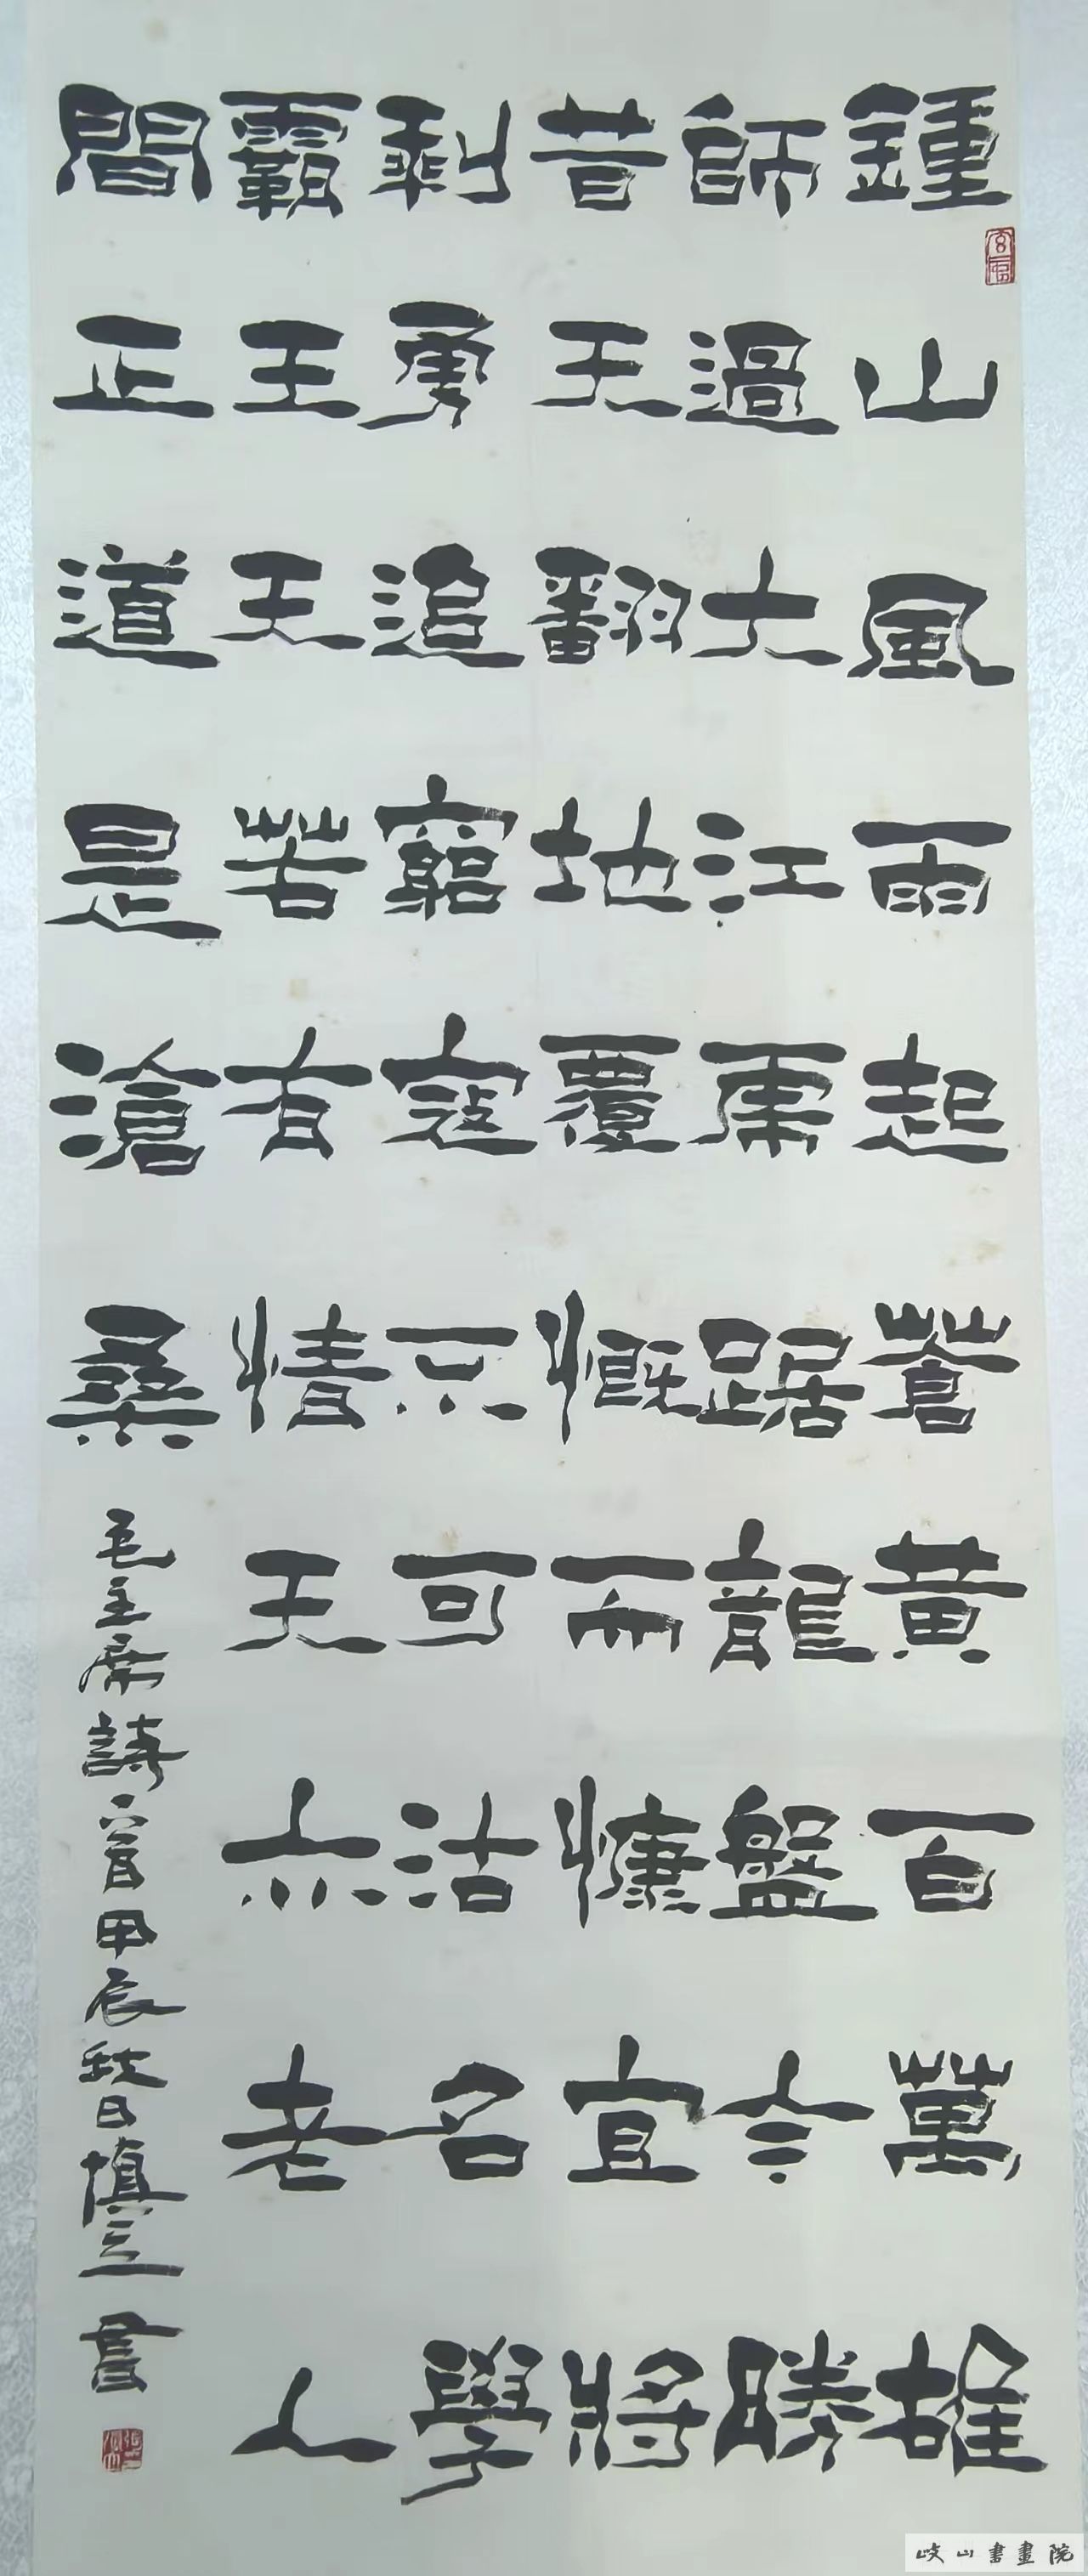 鍾山風雨起蒼黃百萬雄
師過大江虎踞龍盤今勝
昔天翻地覆慨而慷宜將
剩勇追窮寇不可沽名學
霸王天若有情天亦老人
間正道是滄桑
毛主席詩一首甲辰秋日慎書
岐山書畫院